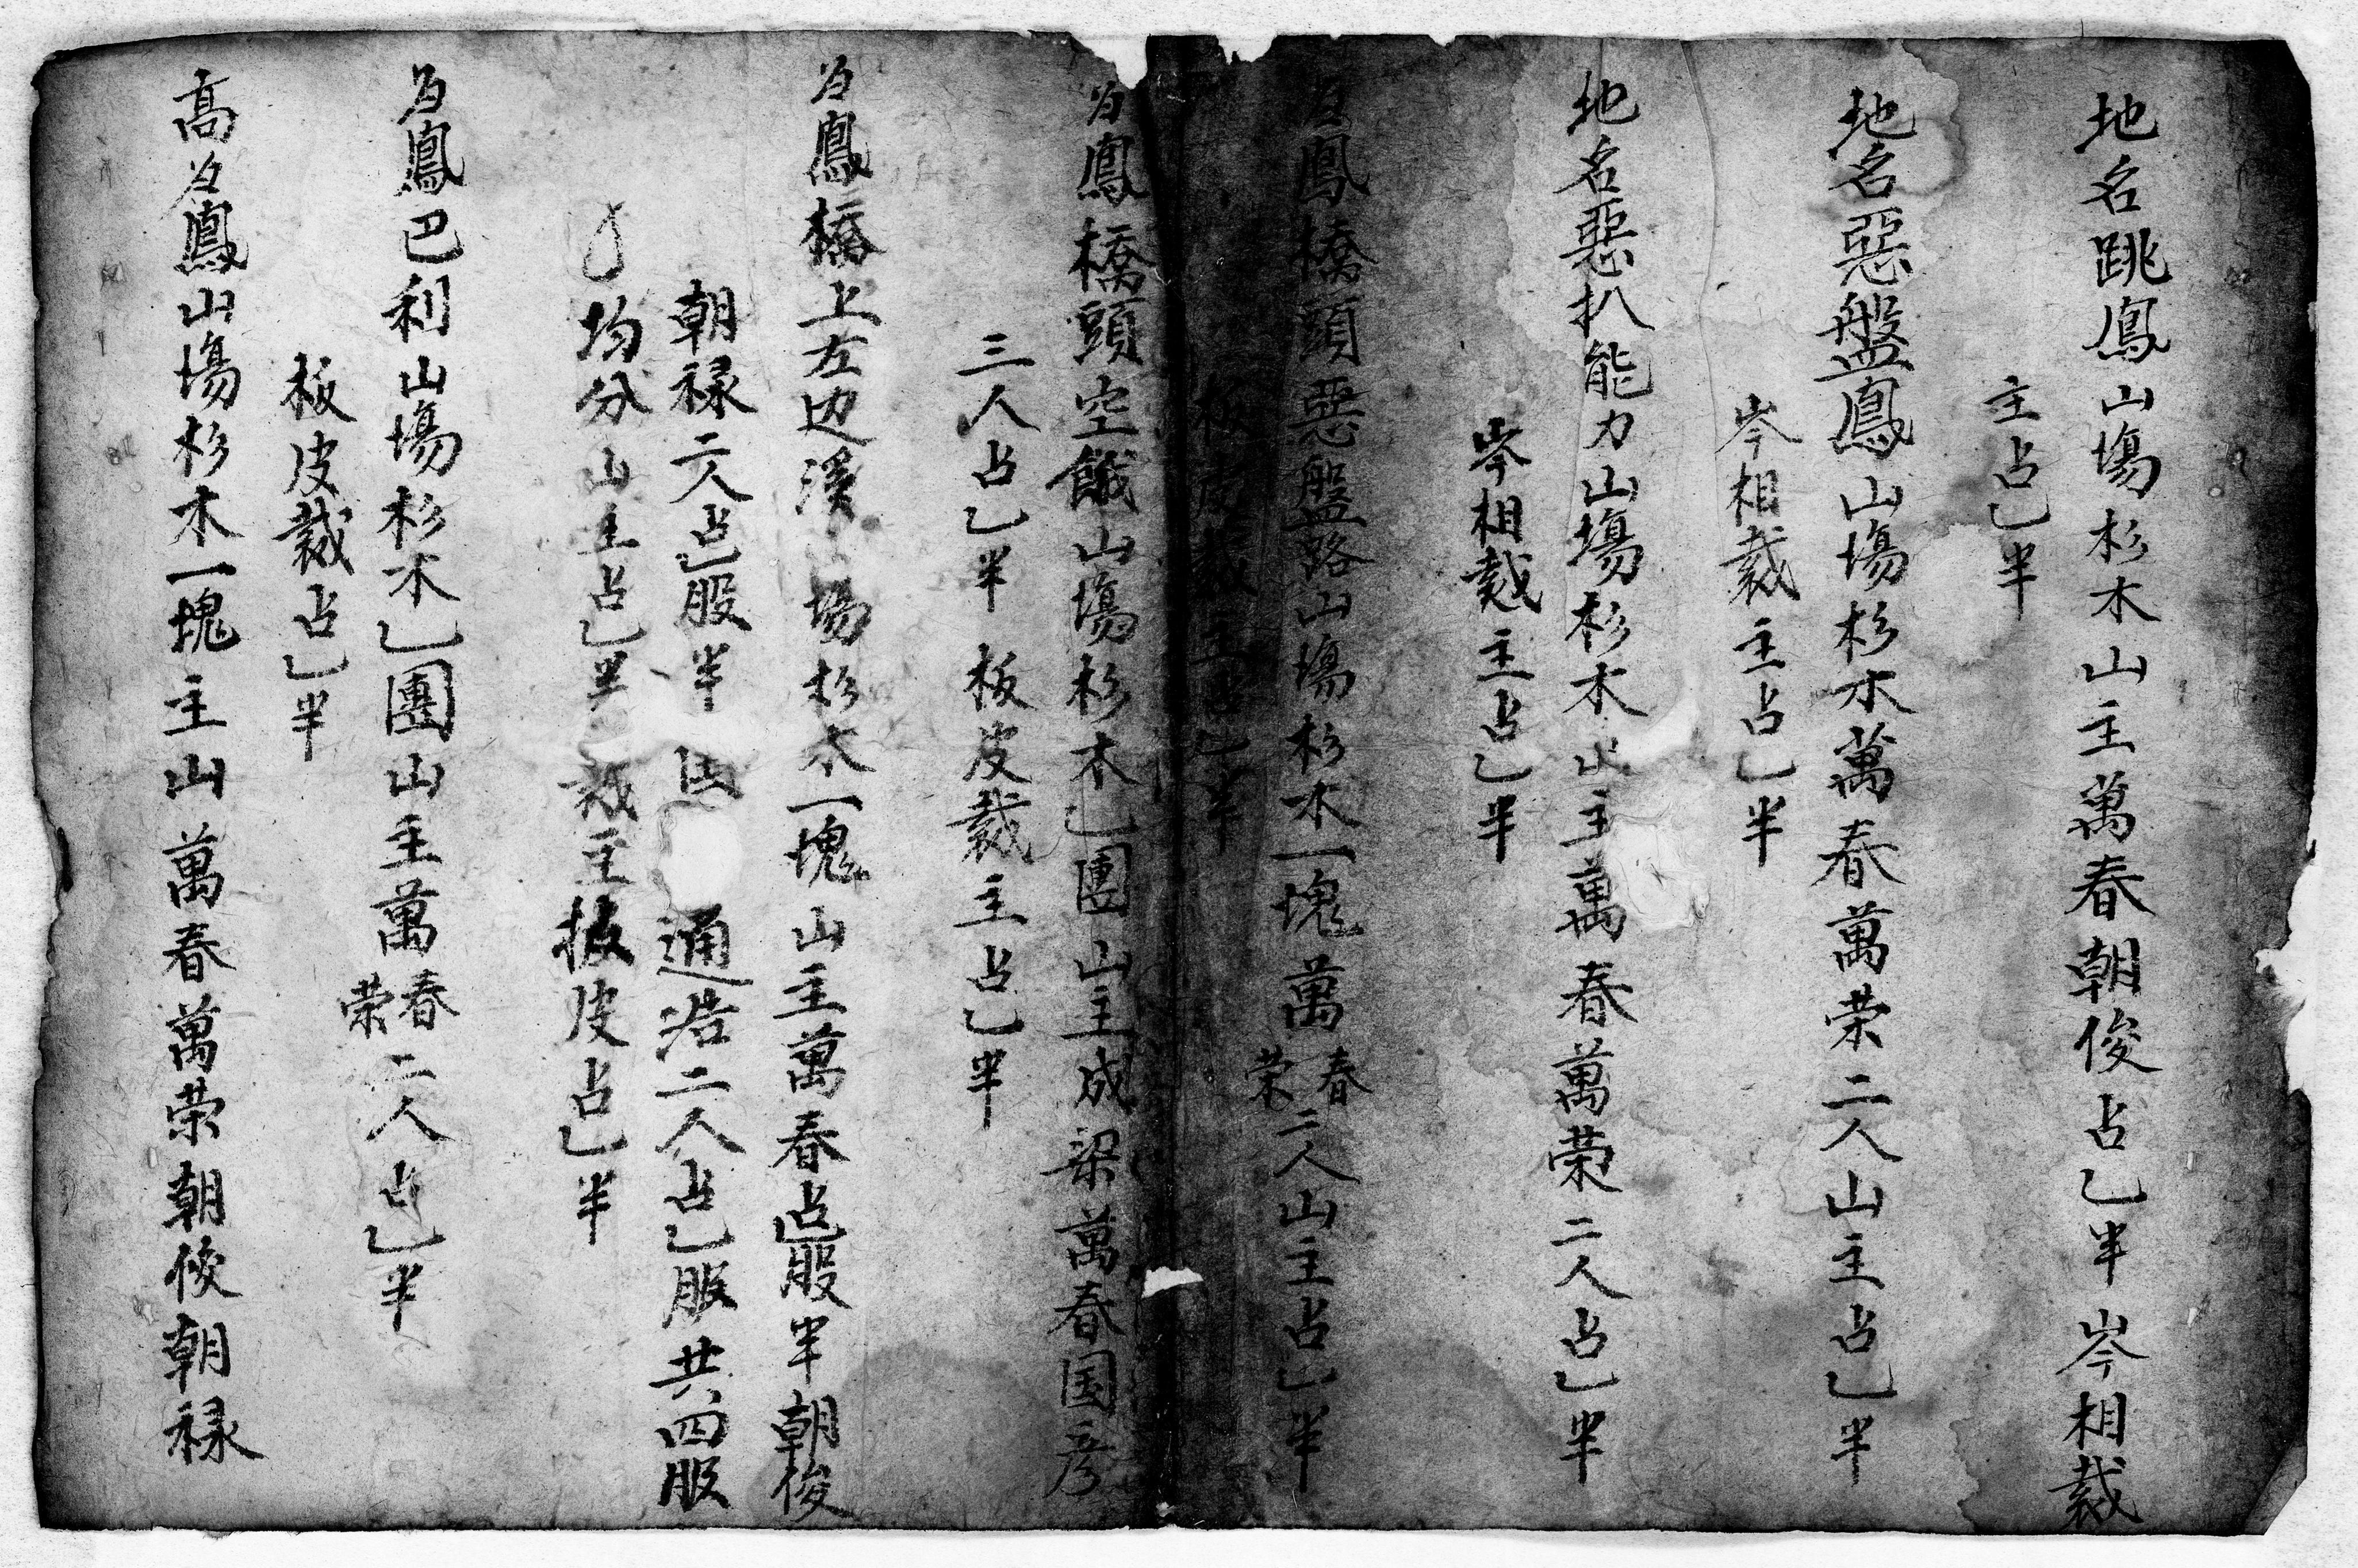 地名跳鳳山塲杉木山主萬春朝俊占乙半岑相裁
主占乙半
地名惡盤鳳山塲杉木萬春萬荣二人山主占乙半
岑相裁主占乙半
地名惡扒能力山塲杉木山主萬春萬荣二人占乙半
岑相裁主占乙半
为鳳橋頭惡盤路山塲杉木一塊萬春荣二人山主占乙半
板皮裁主占乙半
为鳳橋頭空餓山塲杉木乙團山主成梁萬春国彦
三人占乙半 板皮裁主占乙半
为鳳橋上左边溪塲杉木一塊山主萬春占乙股半朝俊
朝禄二人占乙股半 通浩二人占乙股共四股
均分山主占乙半 裁主板皮占乙半
为鳳巴利山塲杉木乙團山主萬春荣二人占乙半
板皮裁占乙半
高为鳳山塲杉木一塊主山萬春萬荣朝俊朝禄